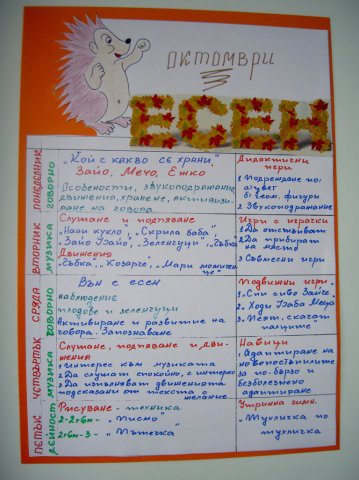 ОКТОМВРИ
ЕСЕН
ПОНЕДЕЛНИК
ГОВОРНО
"Кой с какво се храни"
Зайо, Мечо, Ежко
Особености, звукоподражание,
движения, хранене, активизи-
ране на говора.
Дидактични
игри
1. Подреждане по:
а) цвят
б) геом. фигури
2. Звукоподражание
ВТОРНИК
МУЗИКА
Слушане и подпяване
"Нани кукло", "Скрила баба",
"Зайо Байо", "Зеленчуци", "Събка"
Движения
"Събка", "Козарче", "Мари момиче-
Игри с играчки
1. Да отстъпват
2. Да прибират
на място
3. Съвместни игри
СРЯДА
ГОВОРНО
Вън е есен
наблюдение
плодове и зеленчуци
Активиране и развитие на
говора. Запознаване
Подвижни игри
1. Спи сиво Зайче
2. Ходи Баба Меца
3. Пеят, скачат
палците
ЧЕТВЪРТЪК
МУЗИКА
Слушане, подпяване и дви-
жения
1. Интерес към музиката
2. Да слушат спокойно, с интерес
3. Да изпълняват движенията
подсказани от текста с
желание
Навици
Адаптиране на
новопостъпилите
за по-бързо и
безболезнено
адаптиране
ПЕТЪК
ДЕЙНОСТ
Рисуване - техника
2-2г6м - "Писмо"
2г6м-3 - "Пътечка"
Утринна гимн.
"Тухличка по
тухличка"